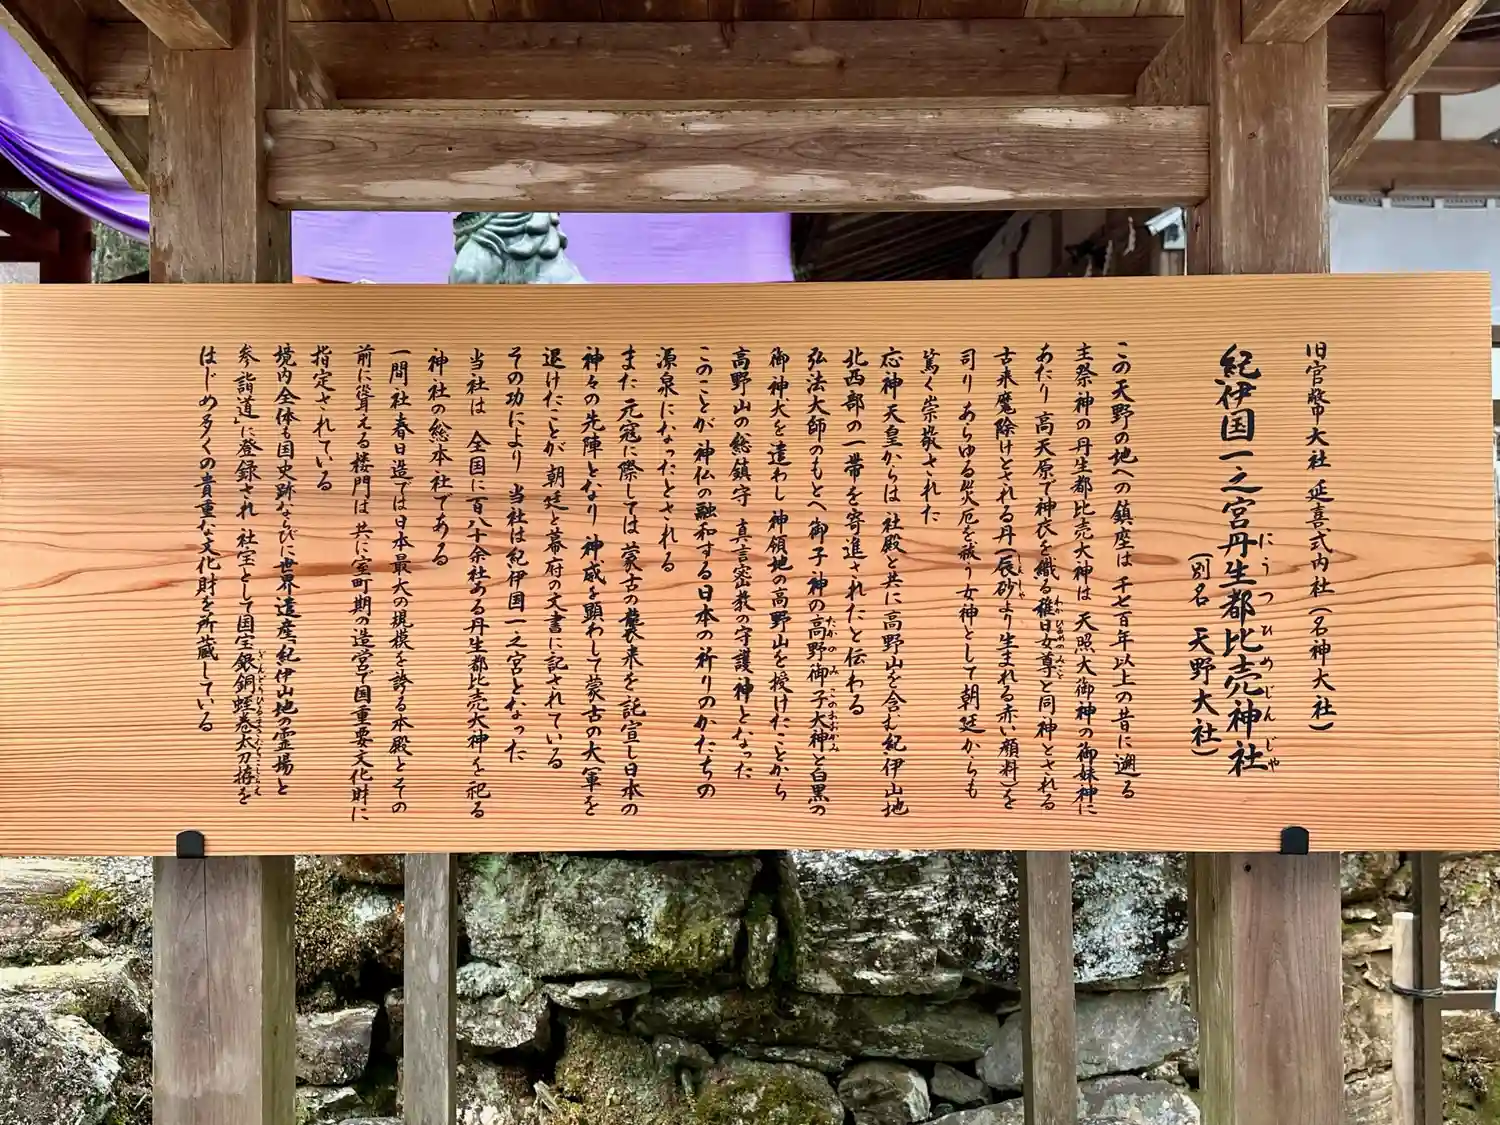 旧官幣大社 延喜式内社(名神大社)
紀伊国一之宮丹生都比売神社
にうつひめじんじゃ
(別名 天野大社)
この天野の地への鎮座は 千七百年以上の昔に遡る
主祭神の丹生都比売大神は 天照大御神の御妹神に
あたり 高天原で神衣を織る稚日女尊と同神とされる
わかひるめのみこと
古来魔除けとされる丹(辰砂より生まれる赤い顔料)を
しんしゃ
司り あらゆる災厄を祓う女神として朝廷からも
篤く崇敬された
応神天皇からは 社殿と共に高野山を含む紀伊山地
北西部の一帯を寄進されたと伝わる
弘法大師のもとへ 御子神の高野御子大神と白黒の
たかのみこのおおかみ
御神犬を遣わし 神領地の高野山を授けたことから
高野山の総鎮守 真言密教の守護神となった
このことが 神仏の融和する日本の祈りのかたちの
源泉になったとされる
また 元寇に際しては 蒙古の襲来を託宣し日本の
神々の先陣となり 神威を顕わして蒙古の大軍を
退けたことが 朝廷と幕府の文書に記されている
その功により 当社は紀伊国一之宮となった
当社は 全国に百八十余社ある丹生都比売大神を祀る
神社の総本社である
一間社春日造では日本最大の規模を誇る本殿とその
前に聳える楼門は 共に室町期の造営で国重要文化財に
指定されている
境内全体も国史跡ならびに世界遺産「紀伊山地の霊場と
参詣道」に登録され 社宝として国宝銀銅蛭巻太刀拵を
ぎんどうひるまきたちこしらえ
はじめ多くの貴重な文化財を所蔵している